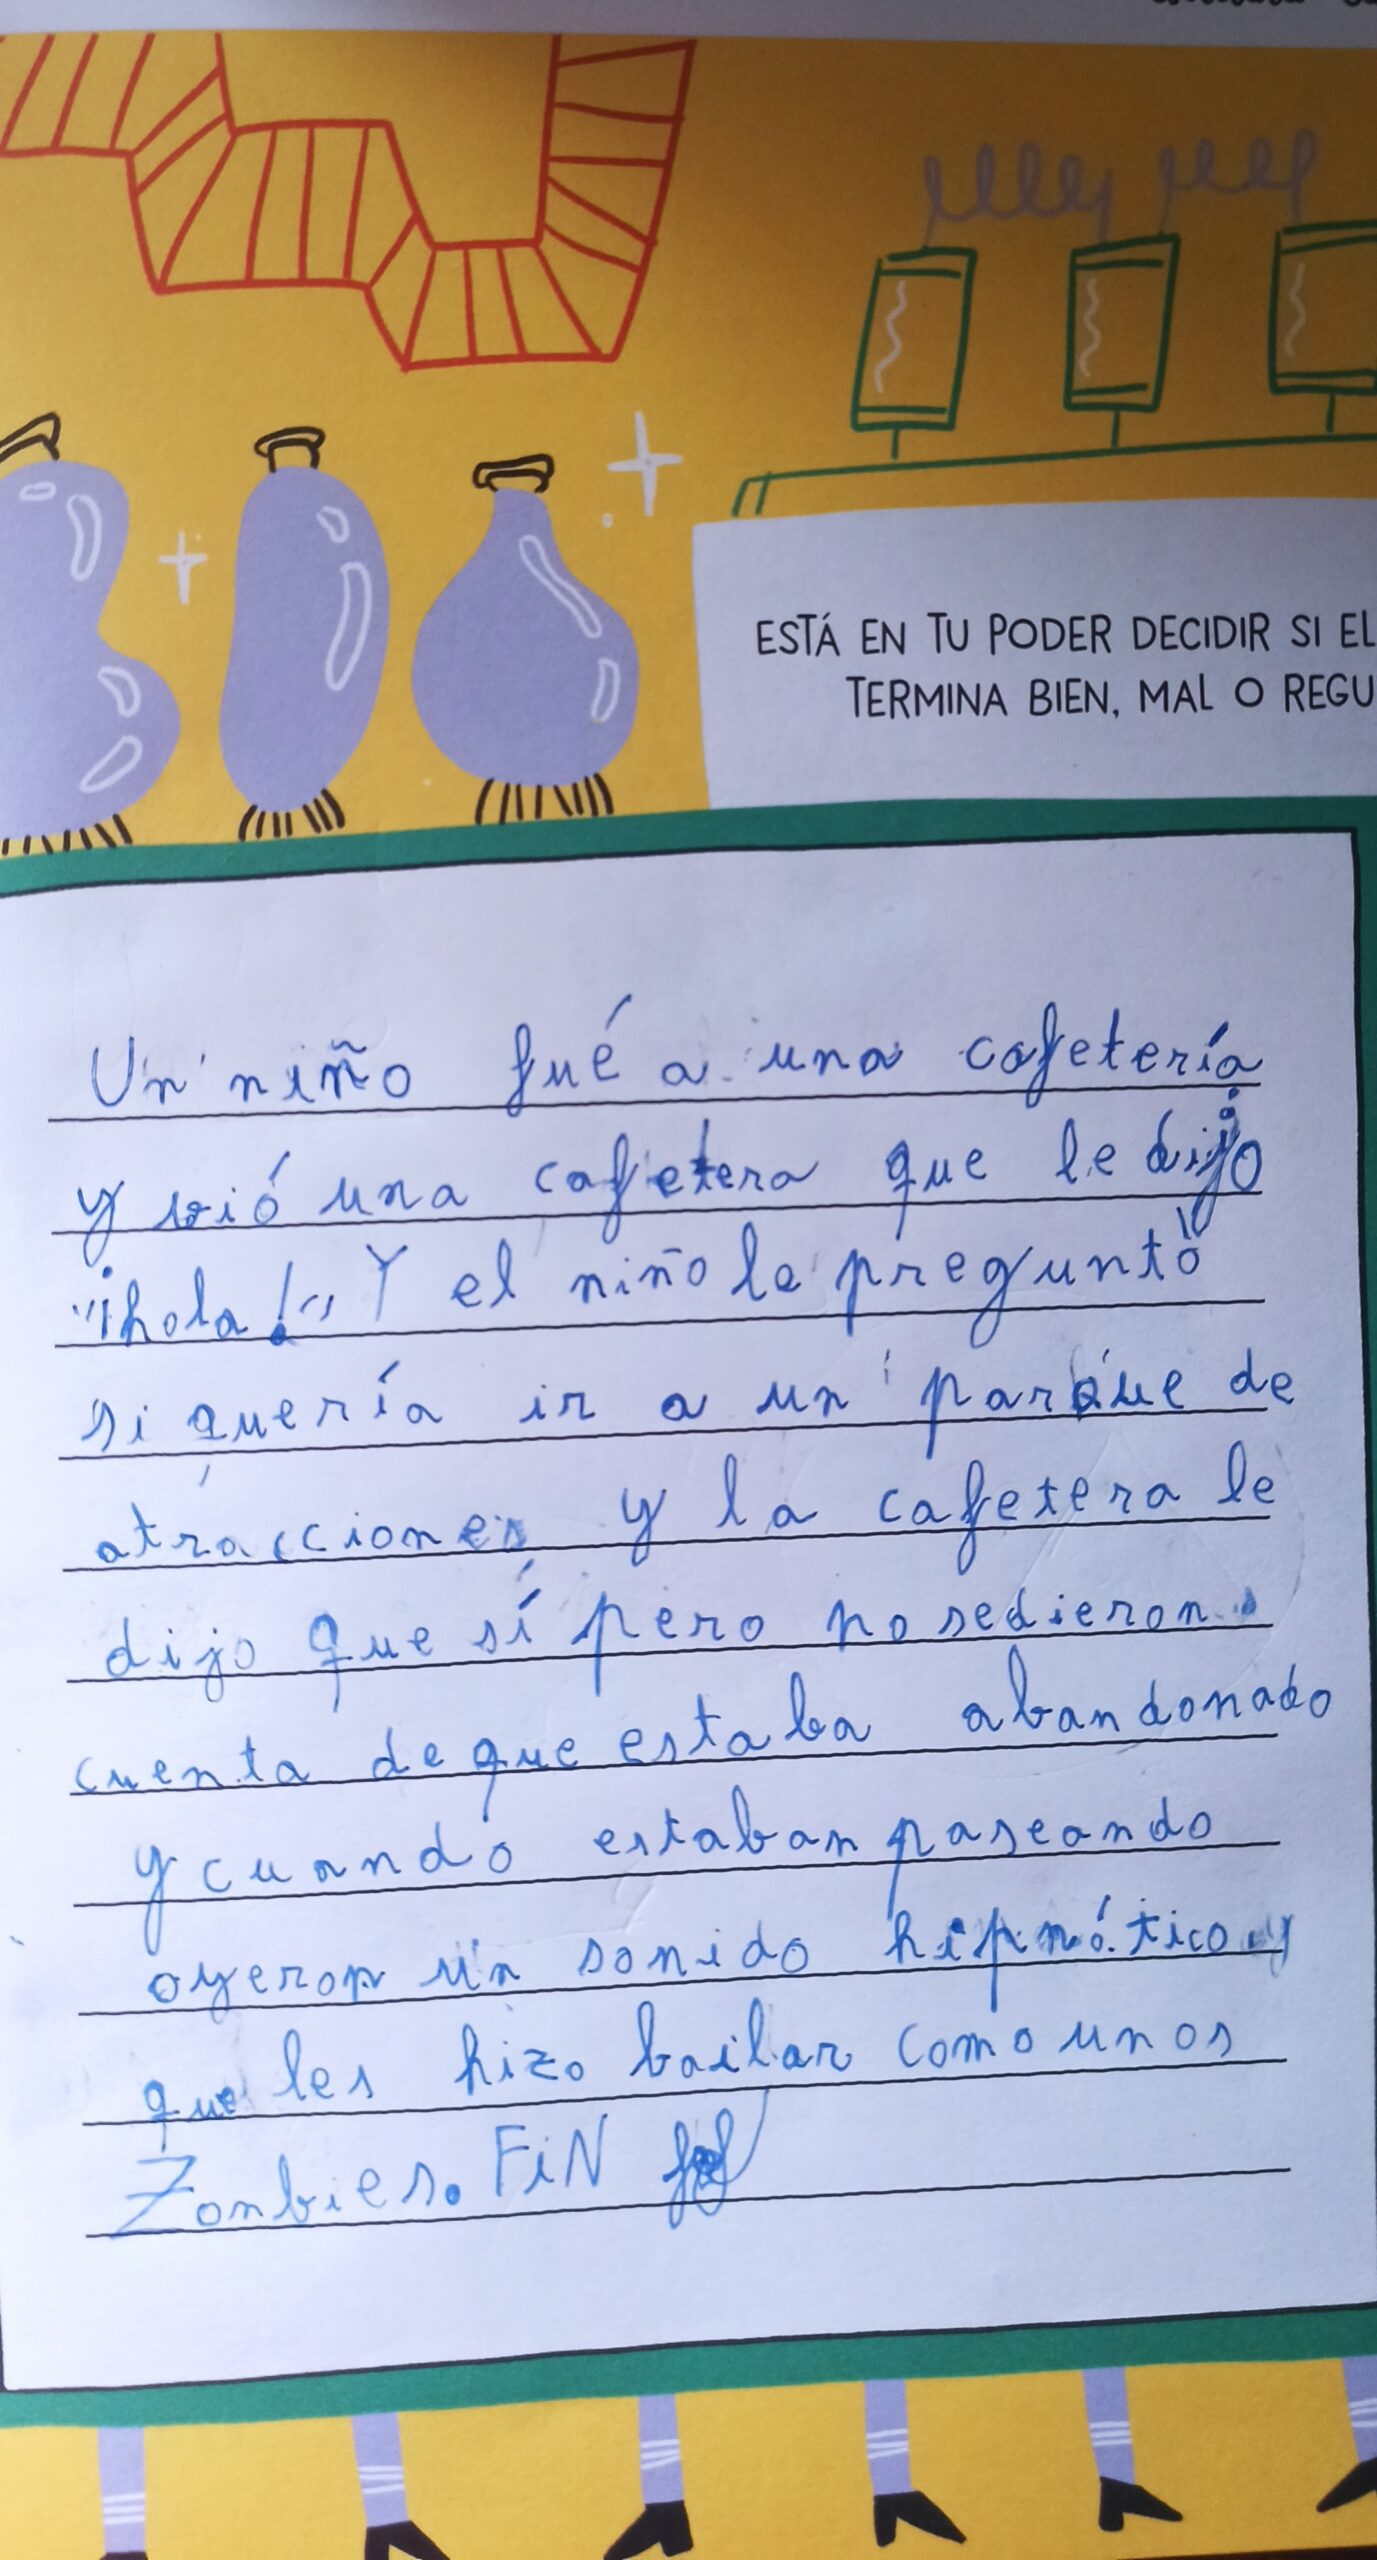 ESTÁ EN TU PODER DECIDIR SI EL
TERMINA BIEN, MAL O REGU
Un niño fué a una cafetería
y vió una cafetera que le dijo
"¡hola!" Y el niño le preguntó
si quería ir a un parque de
atracciones y la cafetera le
dijo que sí pero no sedieron
cuenta de que estaba abandonado
y cuando estaban paseando
oyeron un sonido hipnótico y
que les hizo bailar como unos
Zombies. FiN